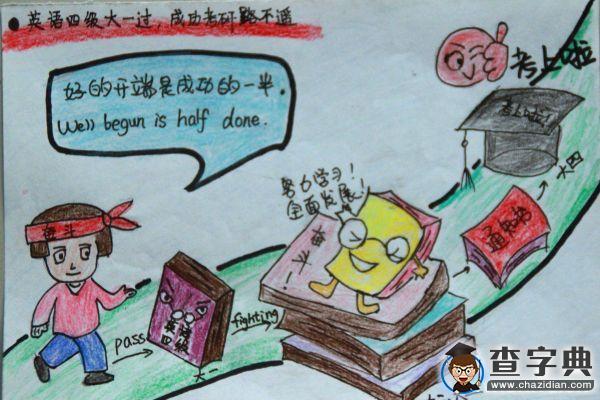 英语四级大一过，成功考研路不遥
考上啦
好的开端是成功的一半.
Well begun is half done.
考上啦!
大四
努力学习!
全面发展!
通知书
奋斗
奋斗
英语
四级
pass
大一
fighting
查字典
www.chazidian.com